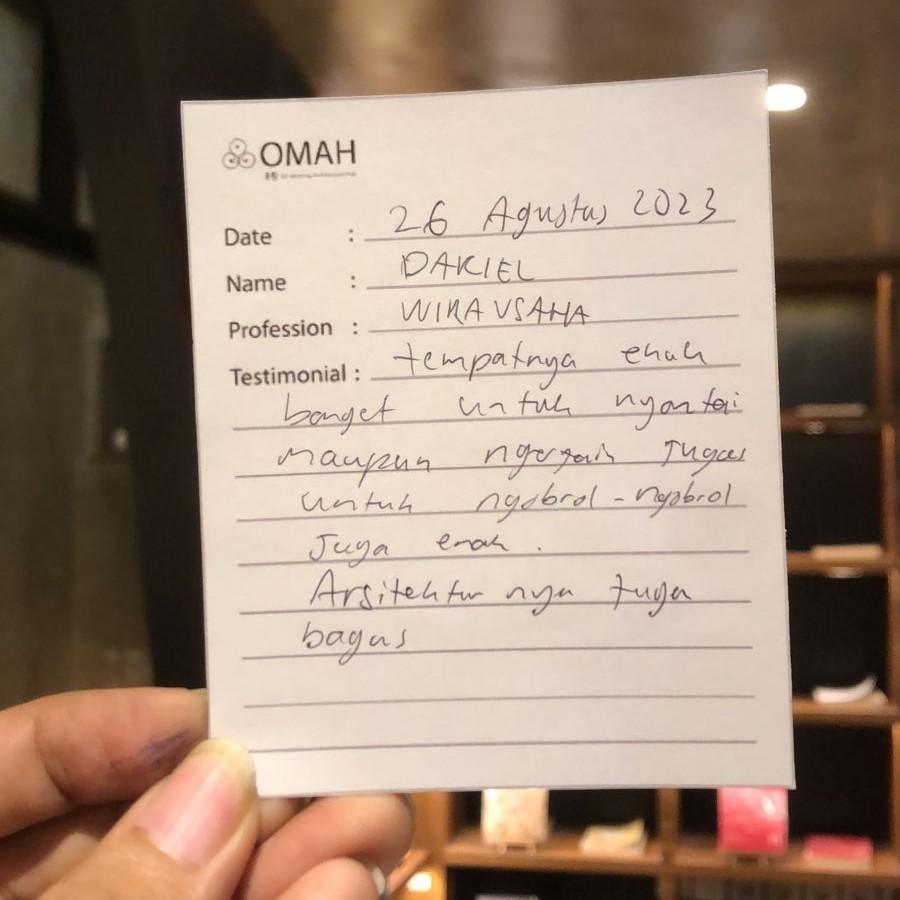 OMAH
Date : 26 Agustus 2023
Name : DARIEL
Profession : WIRAUSAHA
Testimonial : tempatnya enak
banget untuk nyantai
maupun ngerjain Tugas
untuk ngobrol - ngobrol
Juga enak .
Arsitektur nya juga
bagus